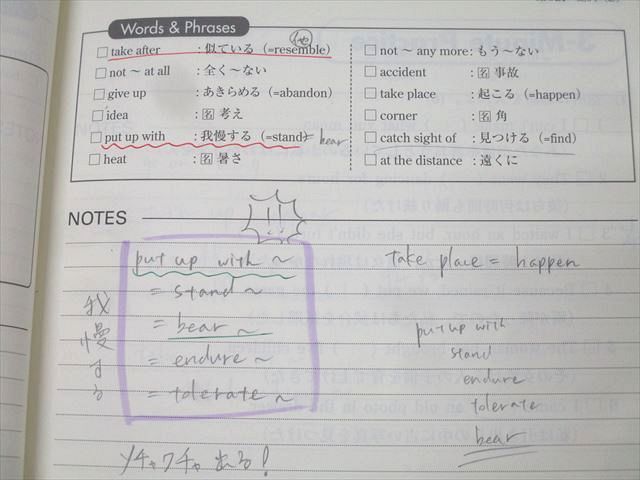 Words & Phrases
take after : 似ている (=resemble)
not ~ at all : 全く~ない
give up : あきらめる (=abandon)
idea : 名 考え
put up with : 我慢する (=stand) = bear
heat : 名 暑さ
not ~ any more : もう~ない
accident : 名 事故
take place : 起こる (=happen)
corner : 名 角
catch sight of : 見つける (=find)
at the distance : 遠くに
NOTES
!!
put up with ~
= stand ~
= bear ~
= endure ~
= tolerate ~
我慢する
メチャクチャ出る!
take place = happen
put up with
stand
endure
tolerate
bear